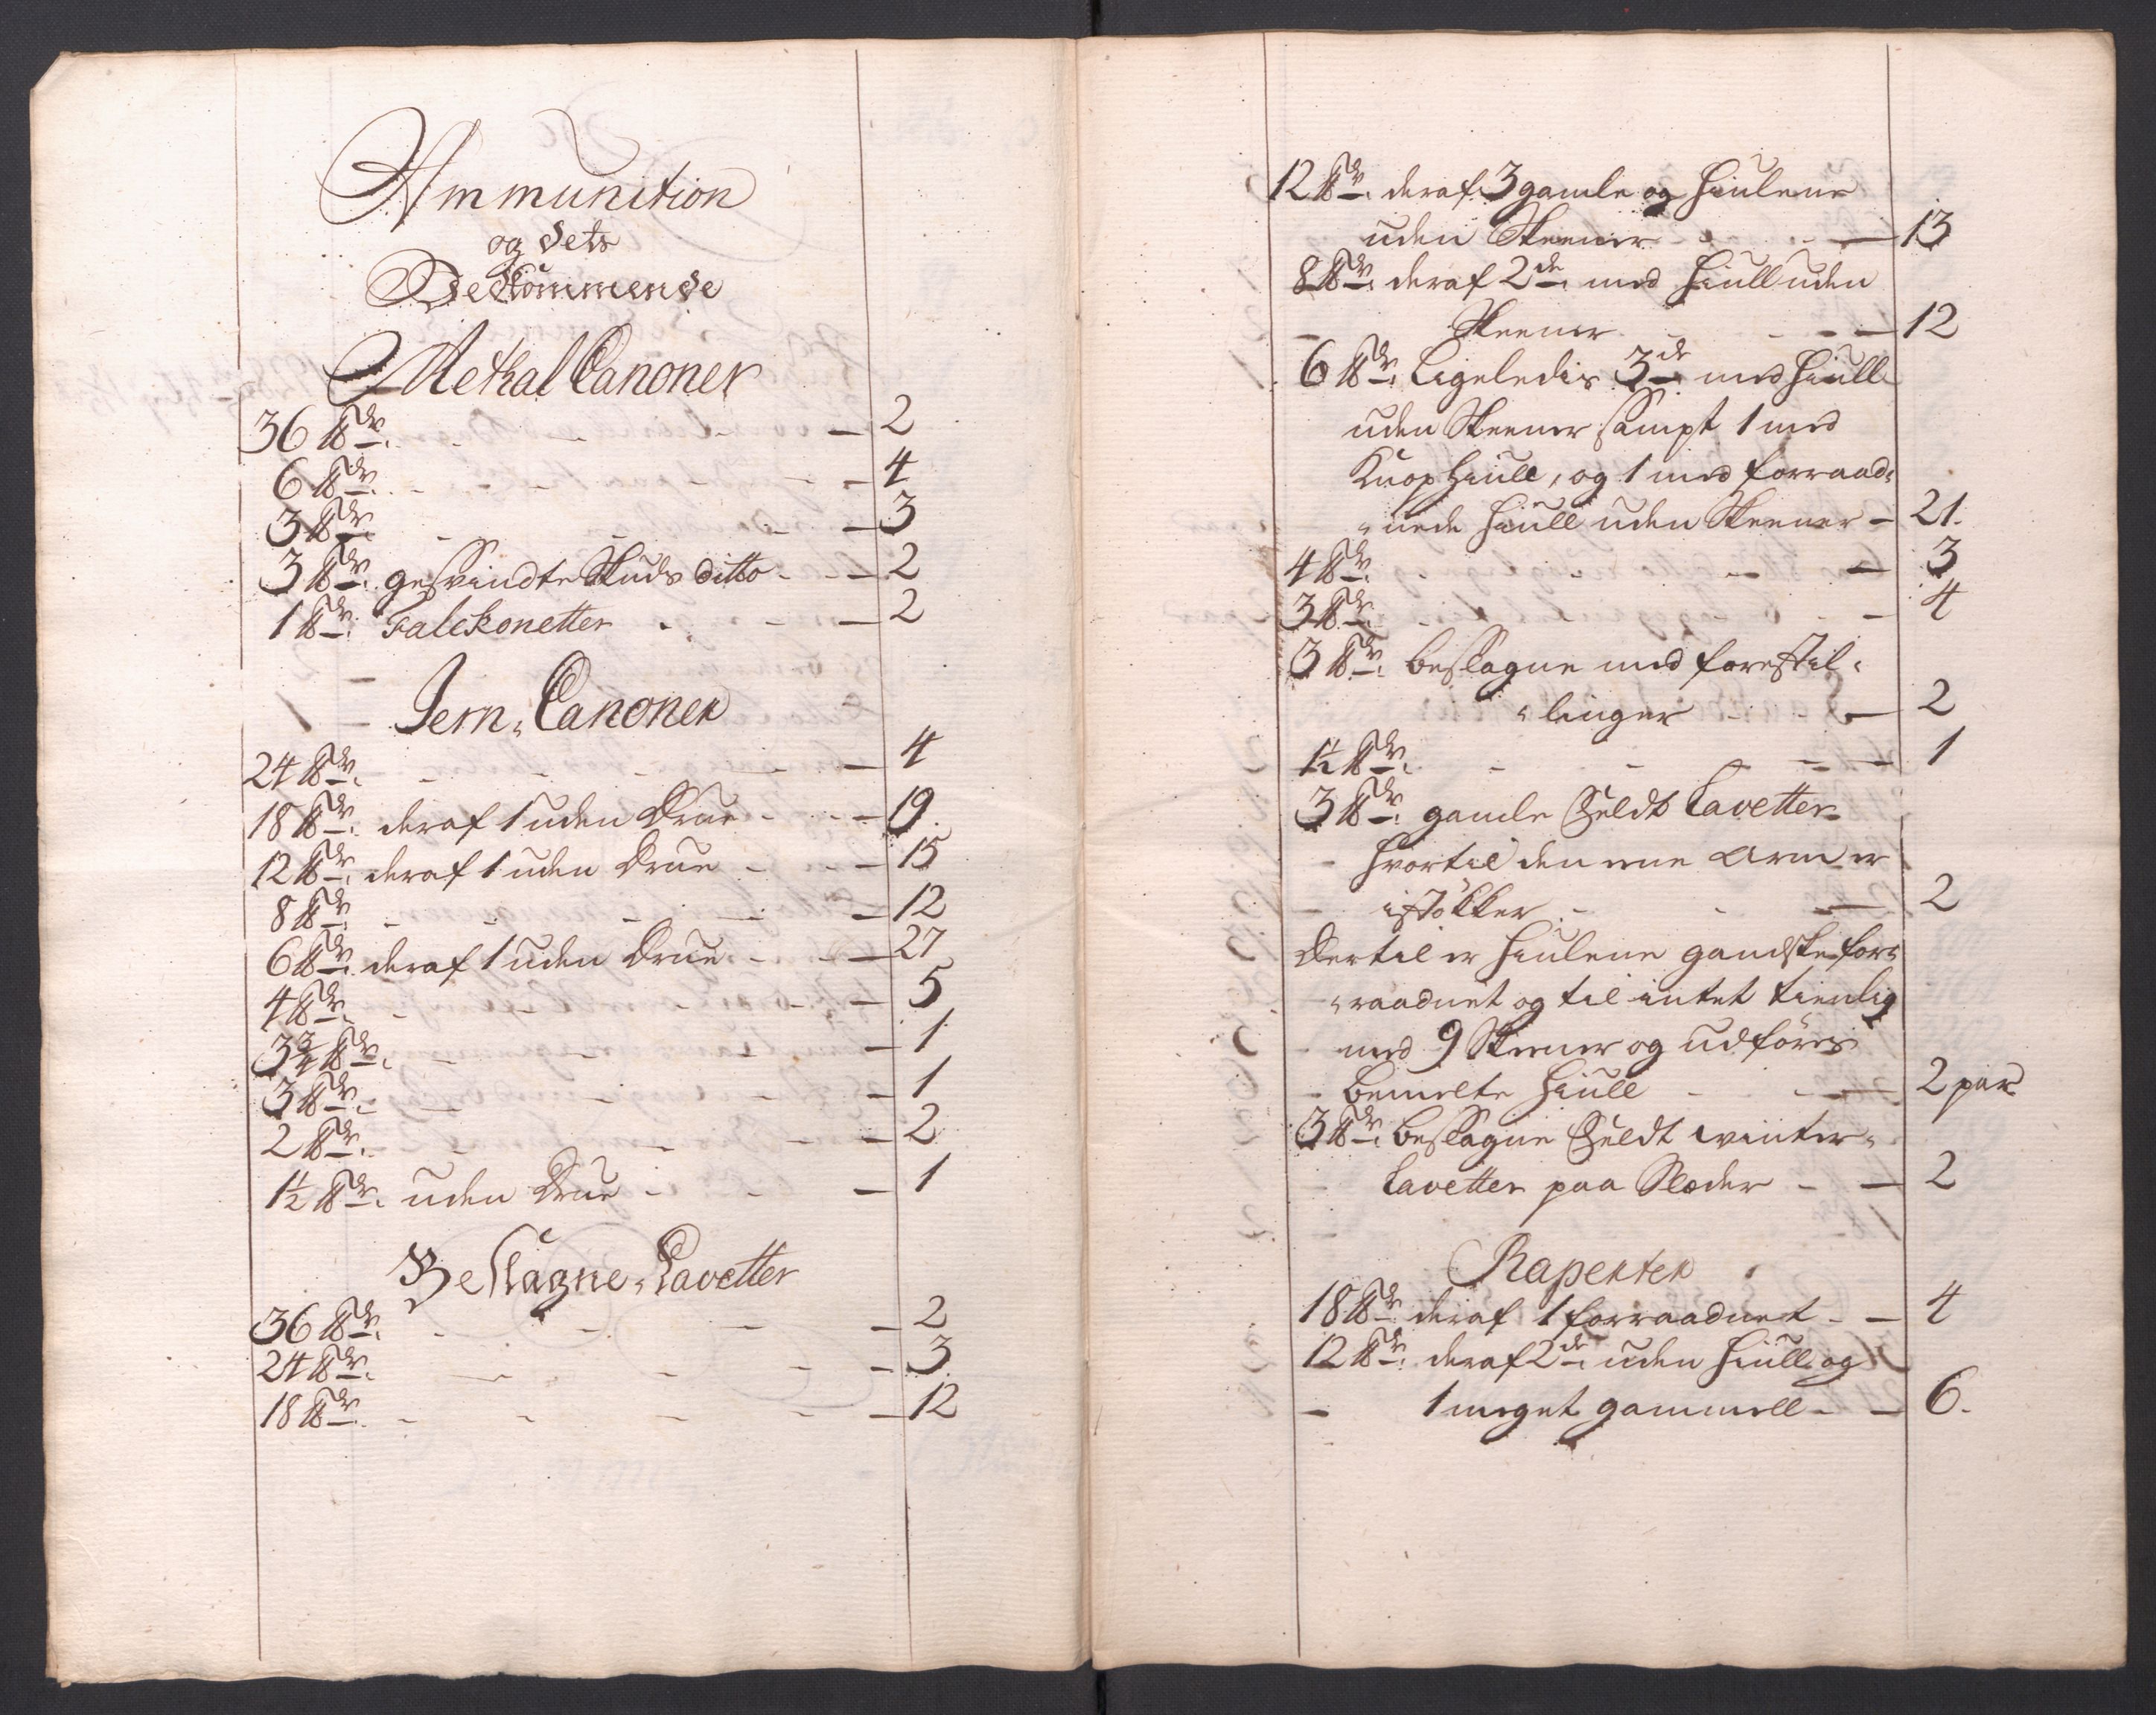 Ammunition
og dets
Bekommende
Metal Canoner
36 ℔dr. - - - 2
6 ℔dr. - - - 4
3 ℔dr. - - - 3
3 ℔dr. gesvindte Skuds ditto - - 2
1 ℔dr. Falckonetter - - 2
Jern-Canoner
24 ℔dr. - - - 4
18 ℔dr. deraf 1 uden Drue - - 19.
12 ℔dr. deraf 1 uden Drue - - 15
8 ℔dr. - - - 12
6 ℔dr. deraf 1 uden Drue - - 27
4 ℔dr. - - - 5
3¾ ℔dr. - - - 1
3 ℔dr. - - - 1
2 ℔dr. - - - 2
1½ ℔dr. uden Drue - - 1
Beslagne-Lavetter
36 ℔dr. - - - 2
24 ℔dr. - - - 3
18 ℔dr. - - - 12
12 ℔dr. deraf 3 gamle og Hiulene
uden Skeener - - 13
8 ℔dr. deraf 2de med Hiull uden
Skeener - - 12
6 ℔dr. Ligeledis 3de med Hiull
uden Skeener sampt 1 med
Knop hiull, og 1 med forraad-
nede Hiull uden Skeener - 21.
4 ℔dr. - - - 3
3 ℔dr. - - - 4
3 ℔dr. beslagne med forestil-
linger - - 2
1½ ℔dr. - - - 1
3 ℔dr. gamle Feldt Lavetter
hvortil den eene Arm er
istökker - - 2
Dertil er Hiulene gandske for-
raadnet og til intet tienlig
med 9 Skeener og udföres
bemelte Hiull - - 2 par
3 ℔dr. beslagne Feldt winter-
Lavetter paa Slæder - - 2
Raperter
18 ℔dr. deraf 1 forraadnet - - 4
12 ℔dr. deraf 2de uden Hiull og
1 meget gammell - - 6.